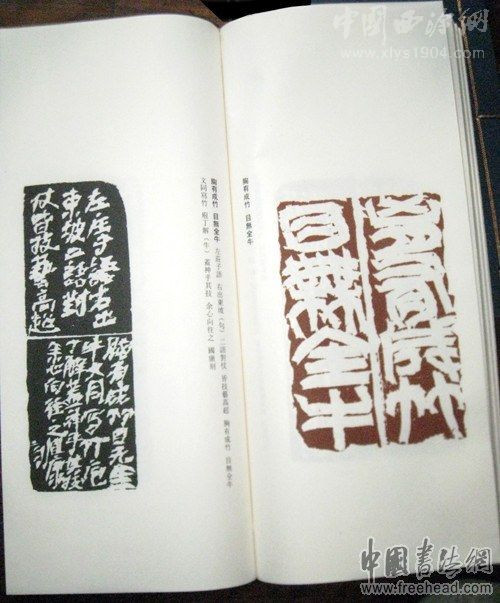 中国西泠網
www.xlys1904.com
胸有成竹 目無全牛
胸有成竹
目無全牛
胸有成竹 目無全牛 左莊子語 右出東坡(句) 二語對仗 皆技藝高超 胸有成竹 目無全牛
文同寫竹 庖丁解(牛) 蓋神乎其技 余心向往之 國康刻
左庄子語右出
東坡二語對
仗皆技藝高超
胸有成竹目無全
牛文同写竹庖
丁解蓋神乎其技
余心向往之
中國書法網
www.freehead.com